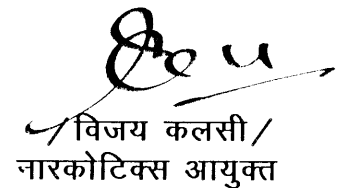 /विजय कलसी/
नारकोटिक्स आयुक्त